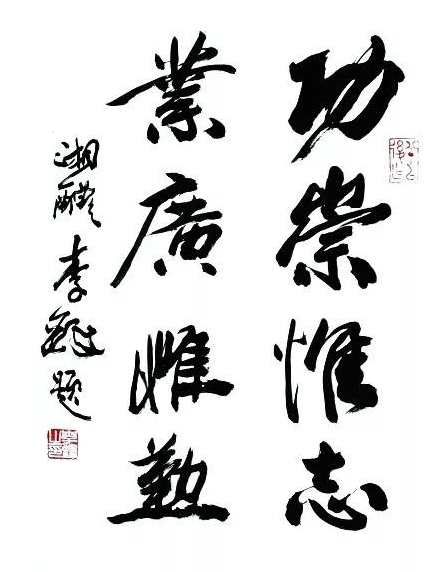 功崇惟志
業廣惟勤
湘醴李題